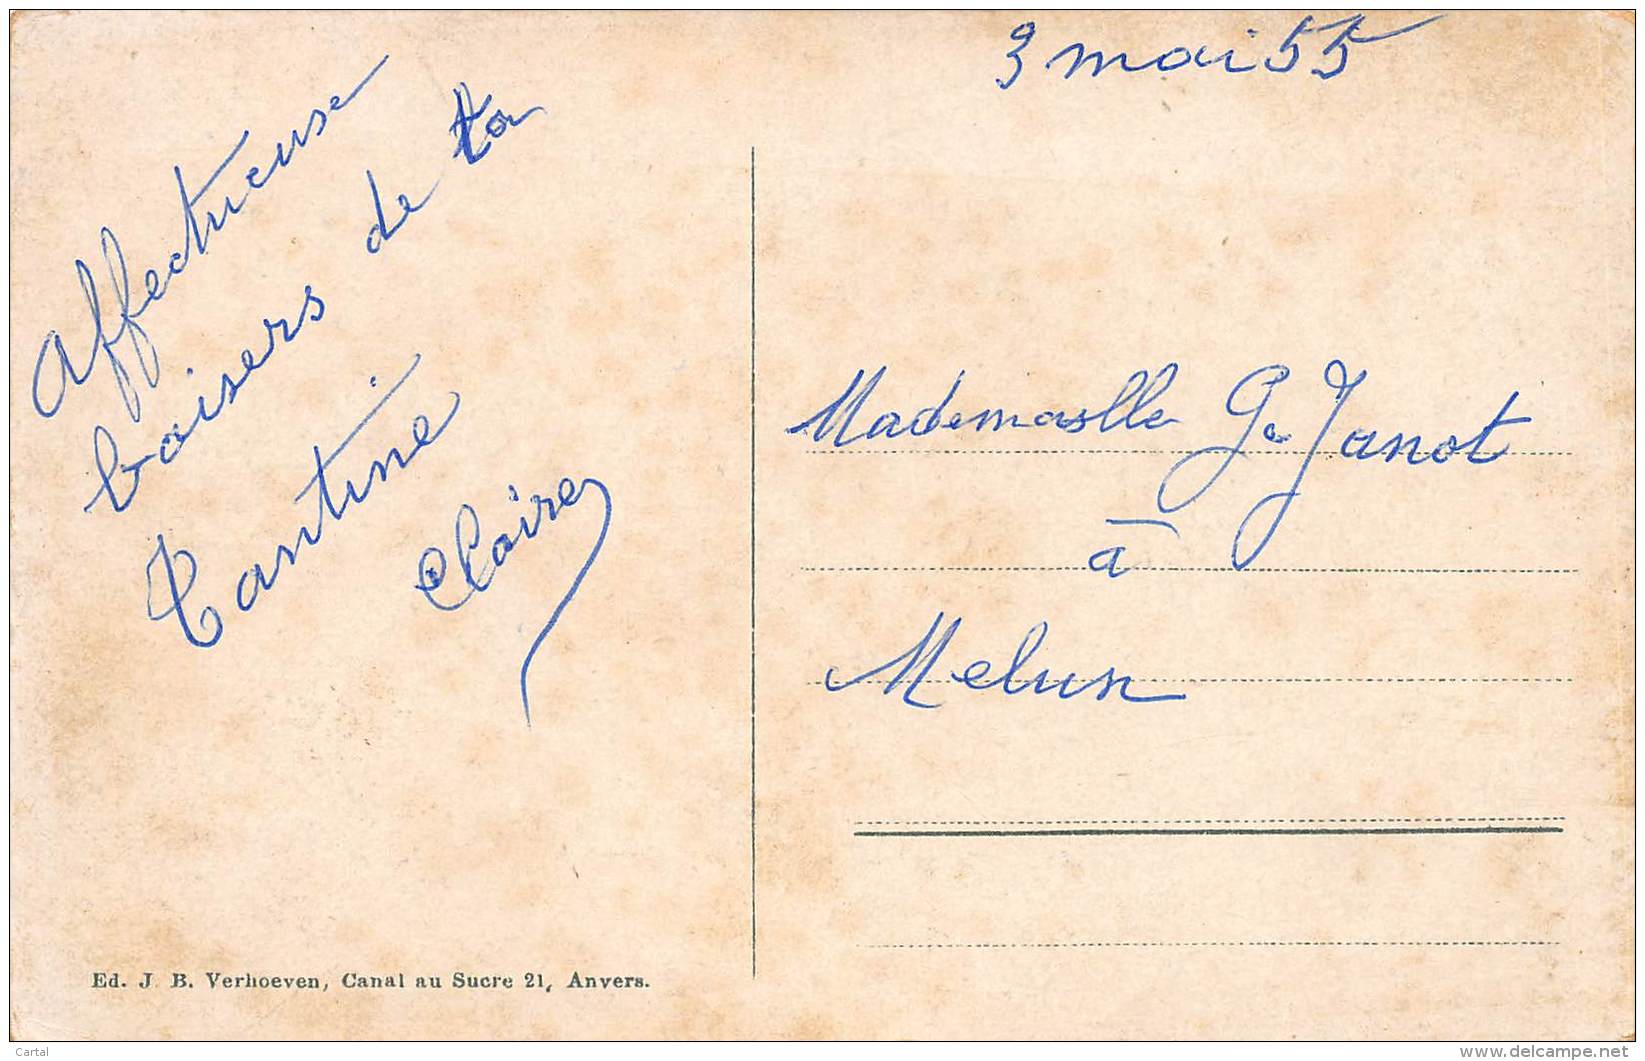 3 mai 55
Affectueuse
baisers de ta
Tantine
Claire
Mademoslle G. Janot
à
Melun
Ed. J. B. Verhoeven, Canal au Sucre 21, Anvers.
Cartal
www.delcampe.net